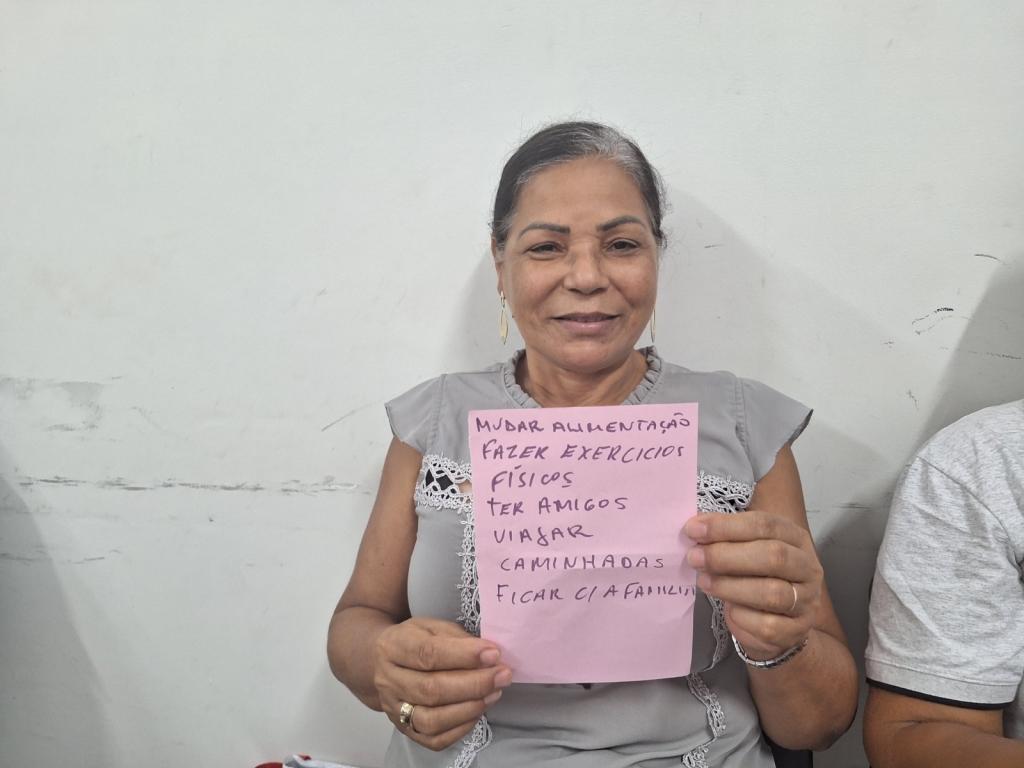 MUDAR ALIMENTAÇÃO
FAZER EXERCICIOS
FÍSICOS
TER AMIGOS
VIAJAR
CAMINHADAS
FICAR C/A FAMILIA